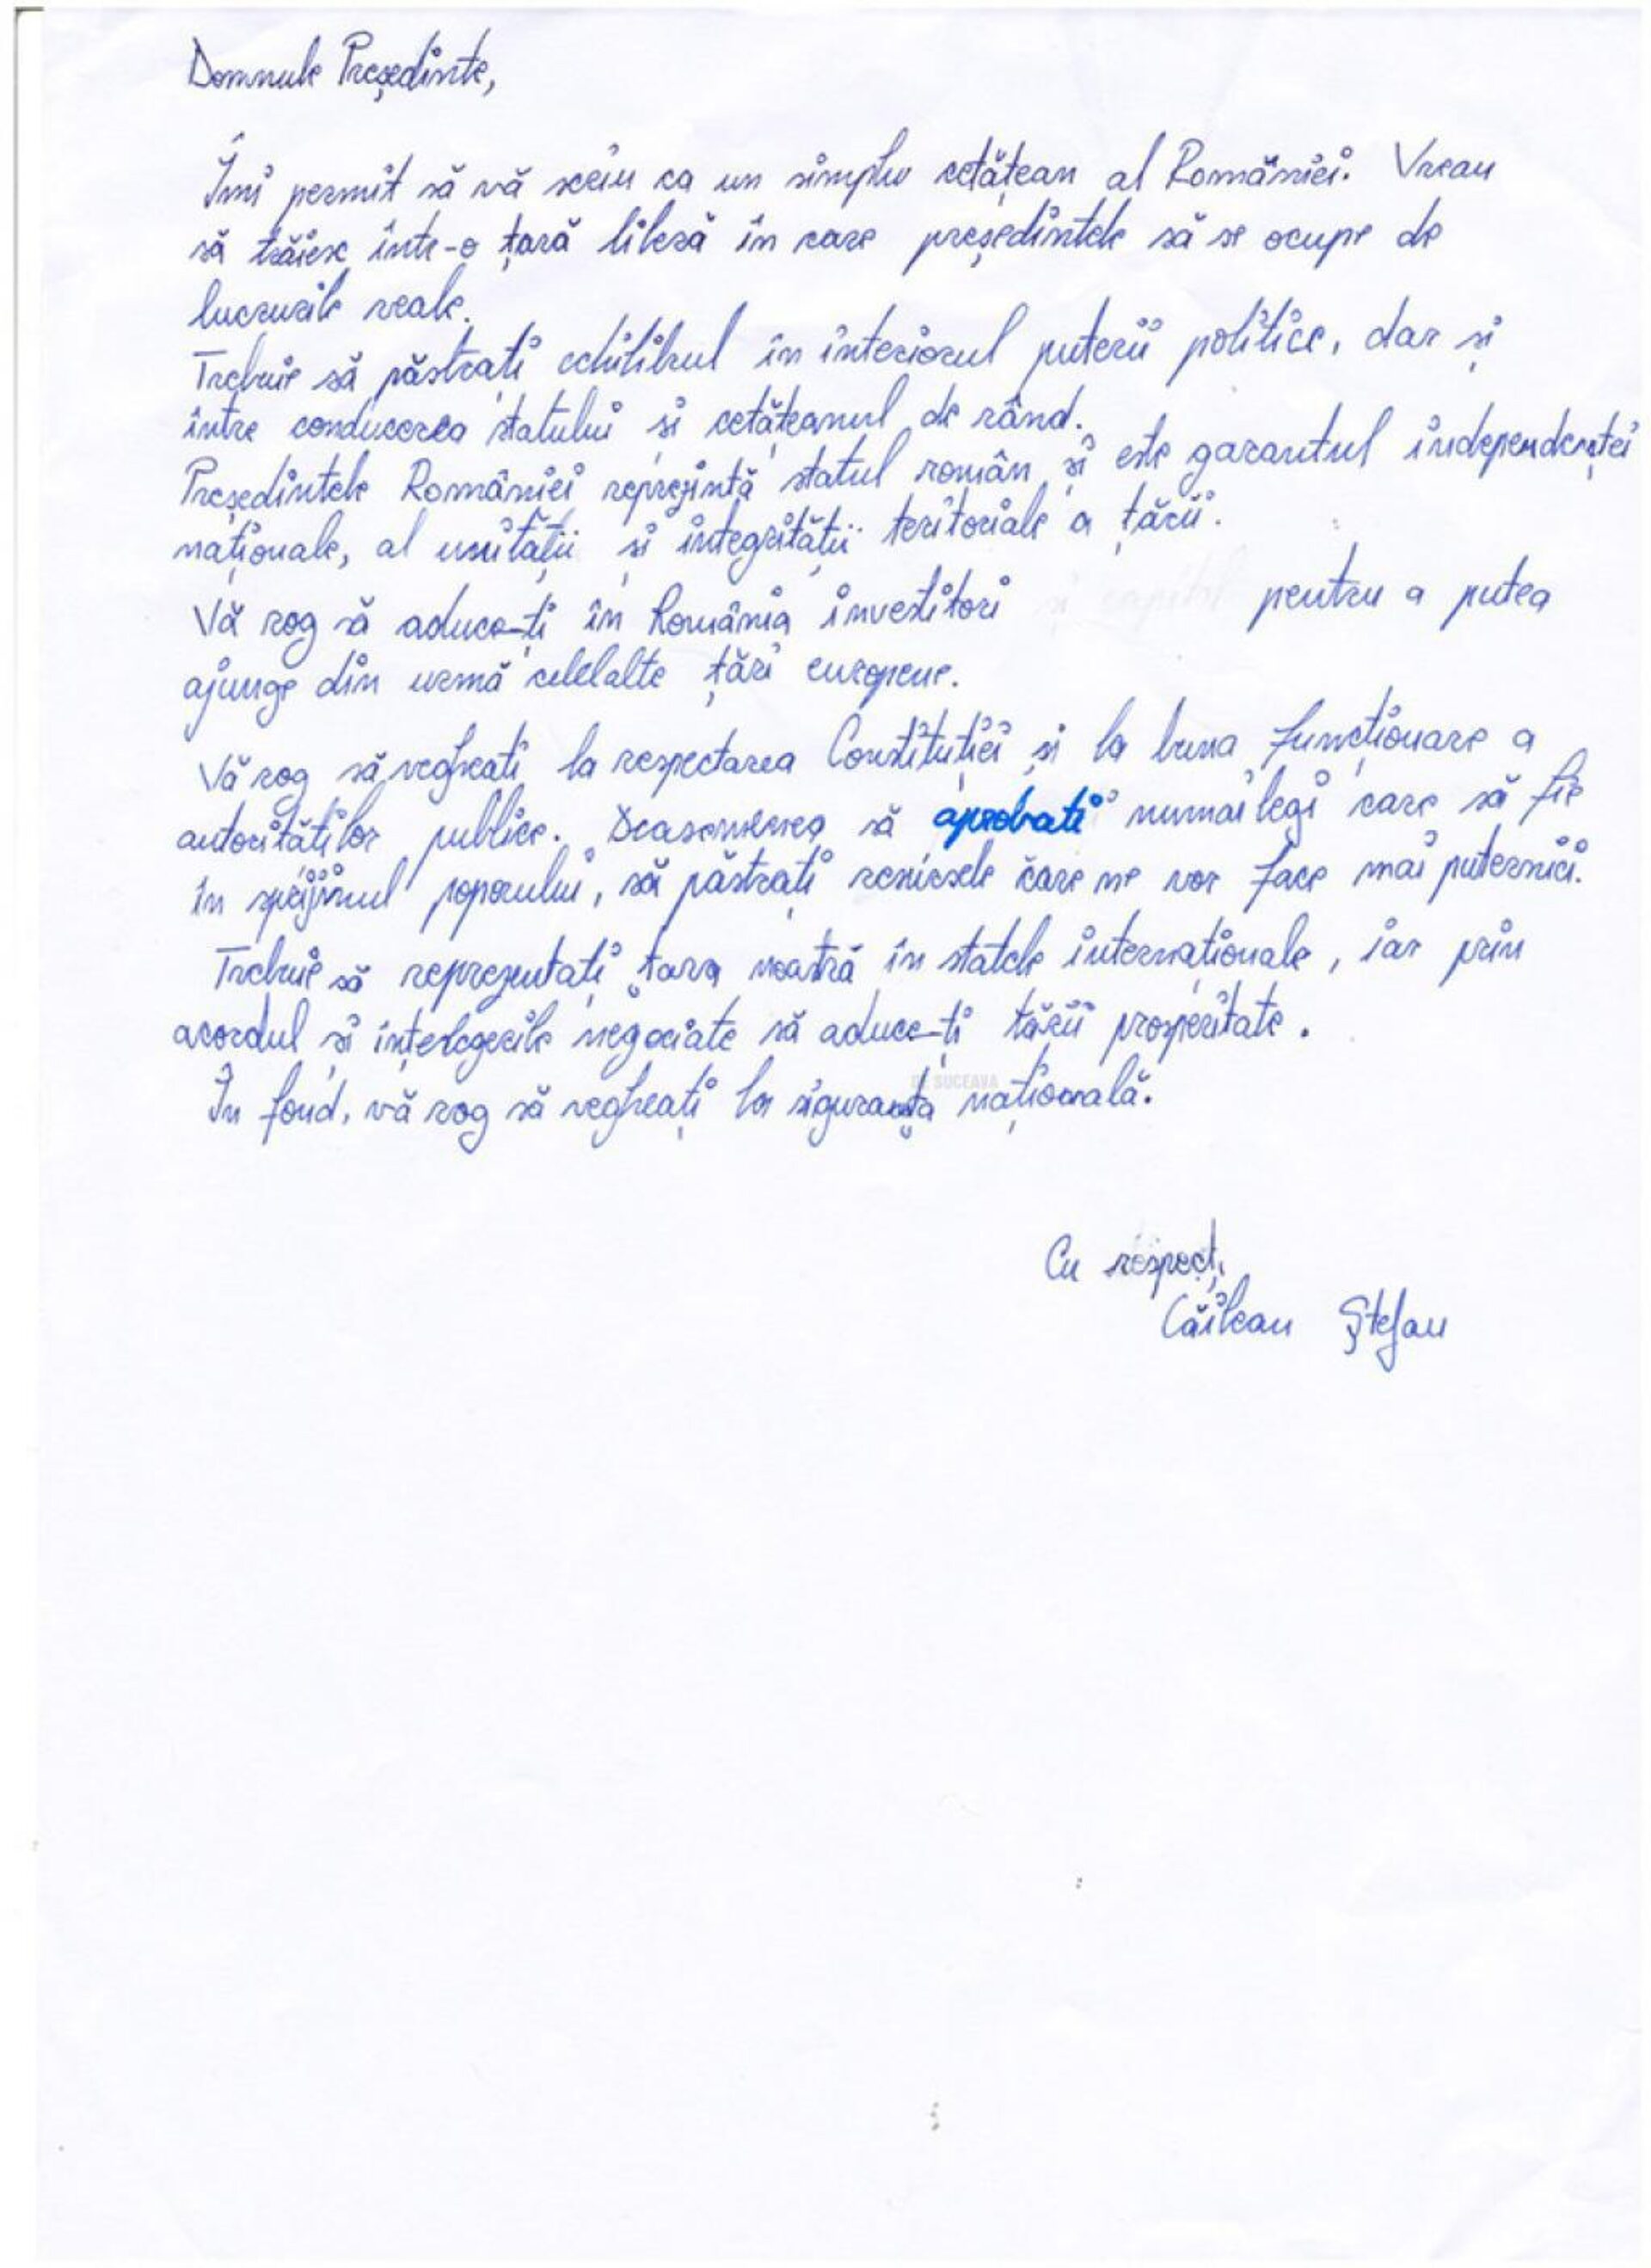 Domnule Președinte,
Îmi permit să vă scriu ca un simplu cetățean al României. Vreau
să trăiesc într-o țară liberă în care președintele să se ocupe de
lucrurile reale.
Trebuie să păstrați echilibrul în interiorul puterii politice, dar și
între conducerea statului și cetățeanul de rând.
Președintele României reprezintă statul român și este garantul independenței
naționale, al unității și integrității teritoriale a țării.
Vă rog să aduce-ți în România investitori pentru a putea
ajunge din urmă celelalte țări europene.
Vă rog să vegheați la respectarea Constituției și la buna funcționare a
autorităților publice. Deasemenea să aprobati numai legi care să fie
în sprijinul poporului, să păstrați care ne vor face mai puternici.
Trebuie să reprezentați țara noastră în statele internaționale, iar prin
acordul și înțelegerile negociate să aduce-ți țării prosperitate.
DE SUCEAVA
În fond, vă rog să vegheați la siguranța națională.
Cu respect,
Căilean Ștefan